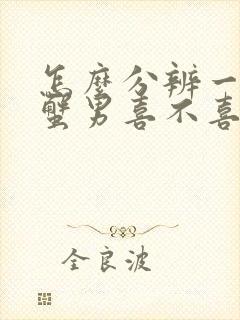 怎麼分辨一
蟹男喜不喜
全良波